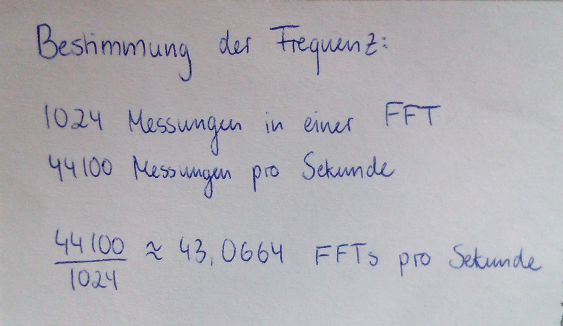 Bestimmung der Frequenz:
1024 Messungen in einer FFT
44100 Messungen pro Sekunde
44100
1024
≈ 43,0664 FFTs pro Sekunde